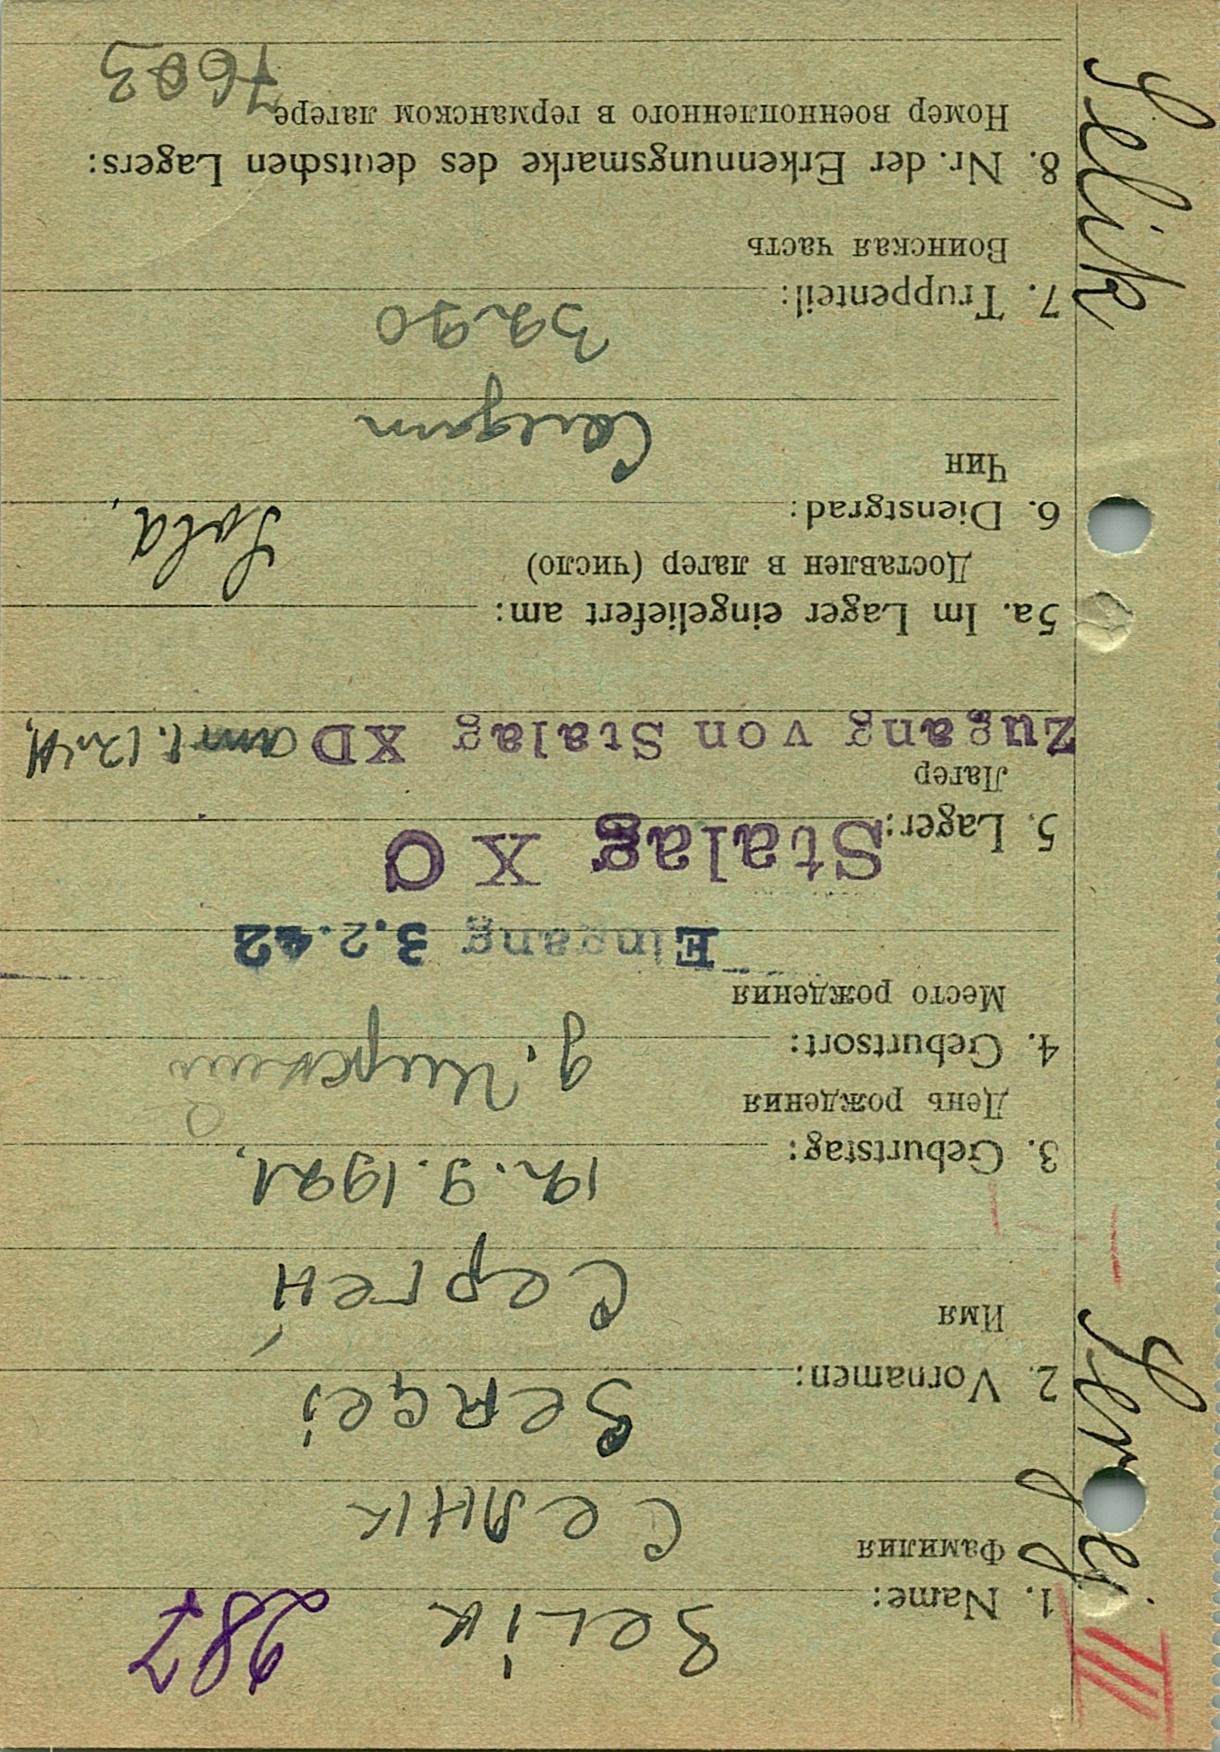 III
Sergej
Selik
1. Name: Selik 287
Фамилия Селик
2. Vornamen: Sergei
Имя Сергей
3. Geburtstag: 12.9.1921.
День рождения
4. Geburtsort: д.
Место рождения
Eingang 3.2.42
5. Lager: Stalag X C
Лагер
Zugang von Stalag XD am 1.12.41.
5a. Im Lager eingeliefert am:
Доставлен в лагер (число)
6. Dienstgrad: Sold.
Чин Солдат
7. Truppenteil: 3290
Воинская часть
8. Nr. der Erkennungsmarke des deutschen Lagers:
Номер военнопленного в германском лагере
7603